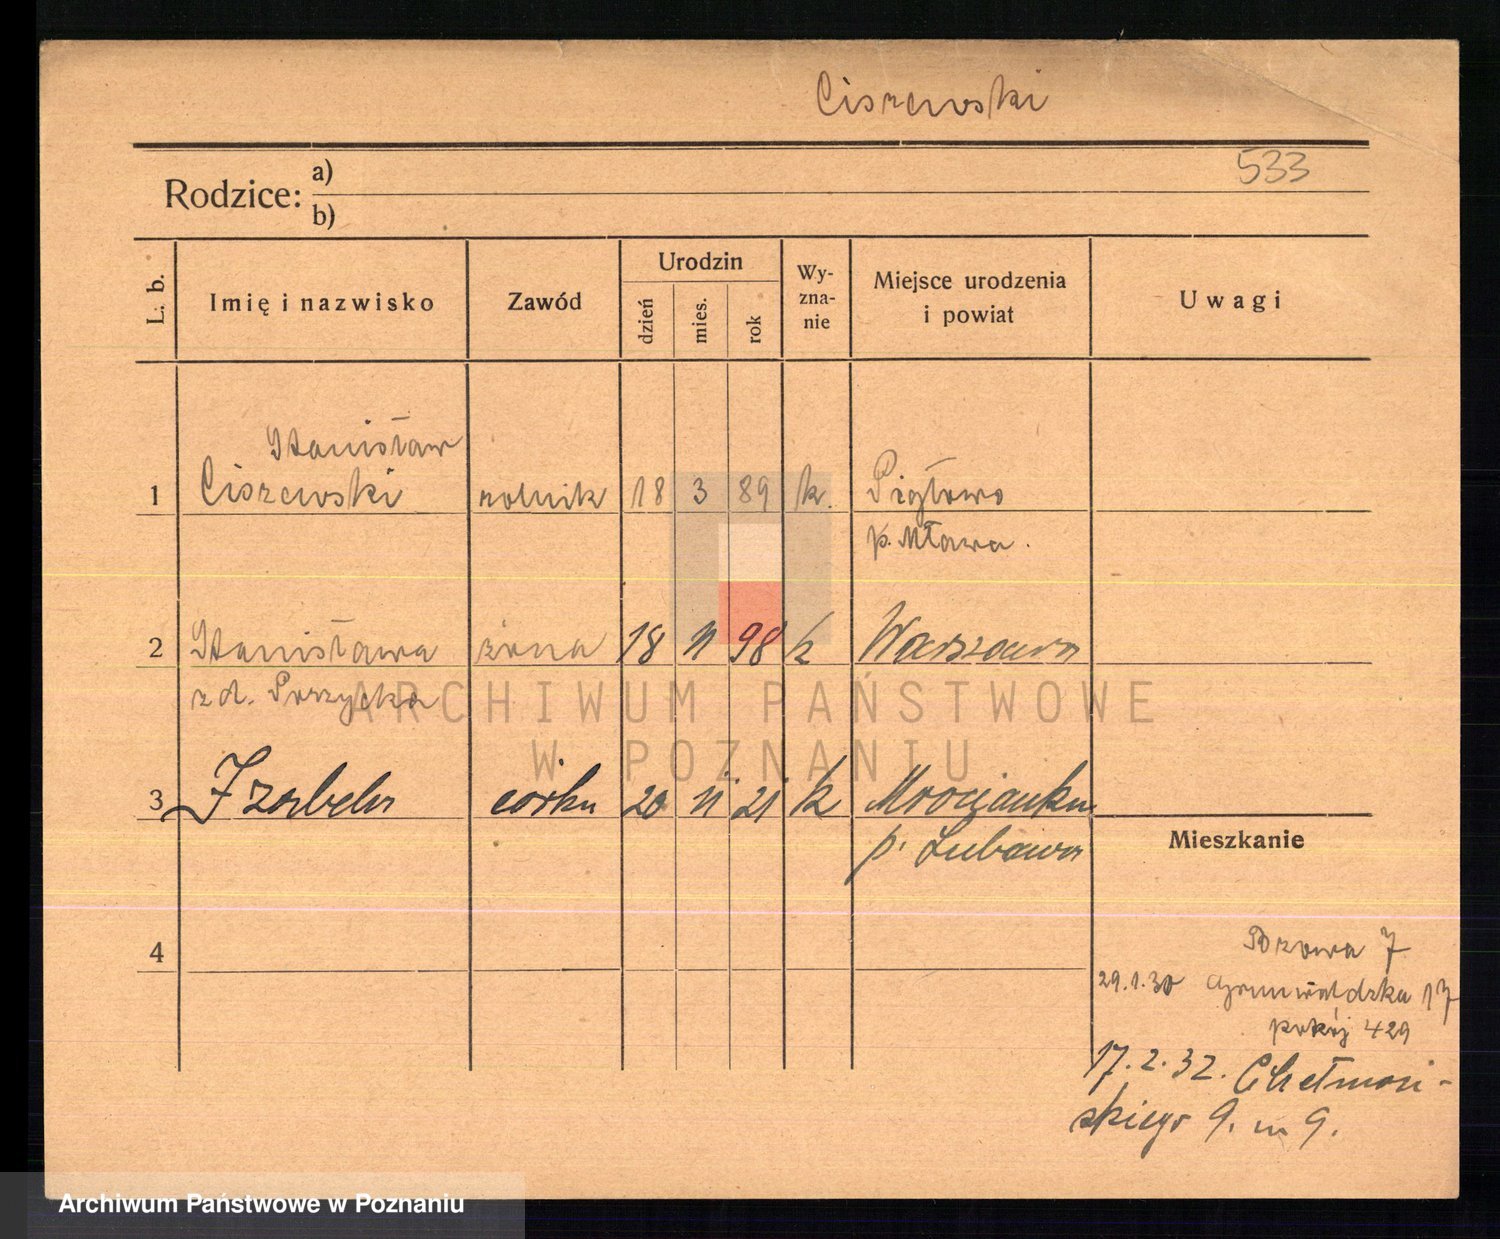 Ciszewski
533
Rodzice: a)
b)
L. b.
Imię i nazwisko
Zawód
Urodzin
dzień
mies.
rok
Wy-
zna-
nie
Miejsce urodzenia
i powiat
Uwagi
Stanisław
1 Ciszewski rolnik 18 3 89 k.
p. Mława.
2 Stanisława żona 18 11 98 k Warszawa
zd.
3 Izabela córka 20 11 21 k
p. Lubawa
Mieszkanie
4
7
29.1.30 Grunwaldzka 17
pokój 429
17.2.32. Chełmoń-
skiego 9. m 9.
ARCHIWUM PAŃSTWOWE
W POZNANIU
Archiwum Państwowe w Poznaniu